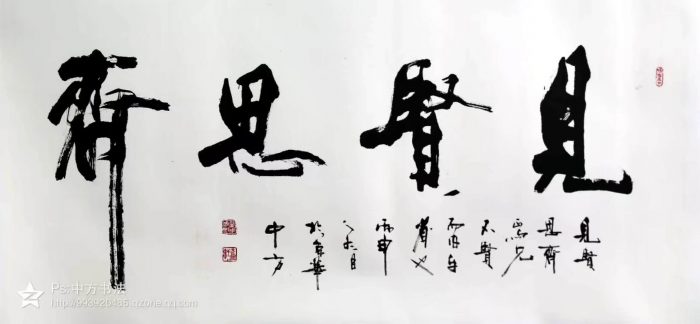 見賢思齊
見賢
思齊
焉見
不賢
而内自
省也
丙申
之秋月
於京華
中方
Ps:中方书法
http://993920485.qzone.qq.com